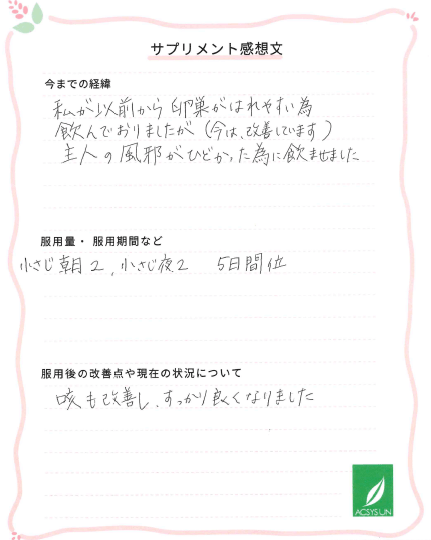 サプリメント感想文
今までの経緯
私が以前から卵巣がはれやすい為
飲んでおりましたが（今は、改善しています）
主人の風邪がひどかった為に飲ませました
服用量・服用期間など
小さじ朝2，小さじ夜2　5日間位
服用後の改善点や現在の状況について
咳も改善し、すっかり良くなりました
ACSYSUN